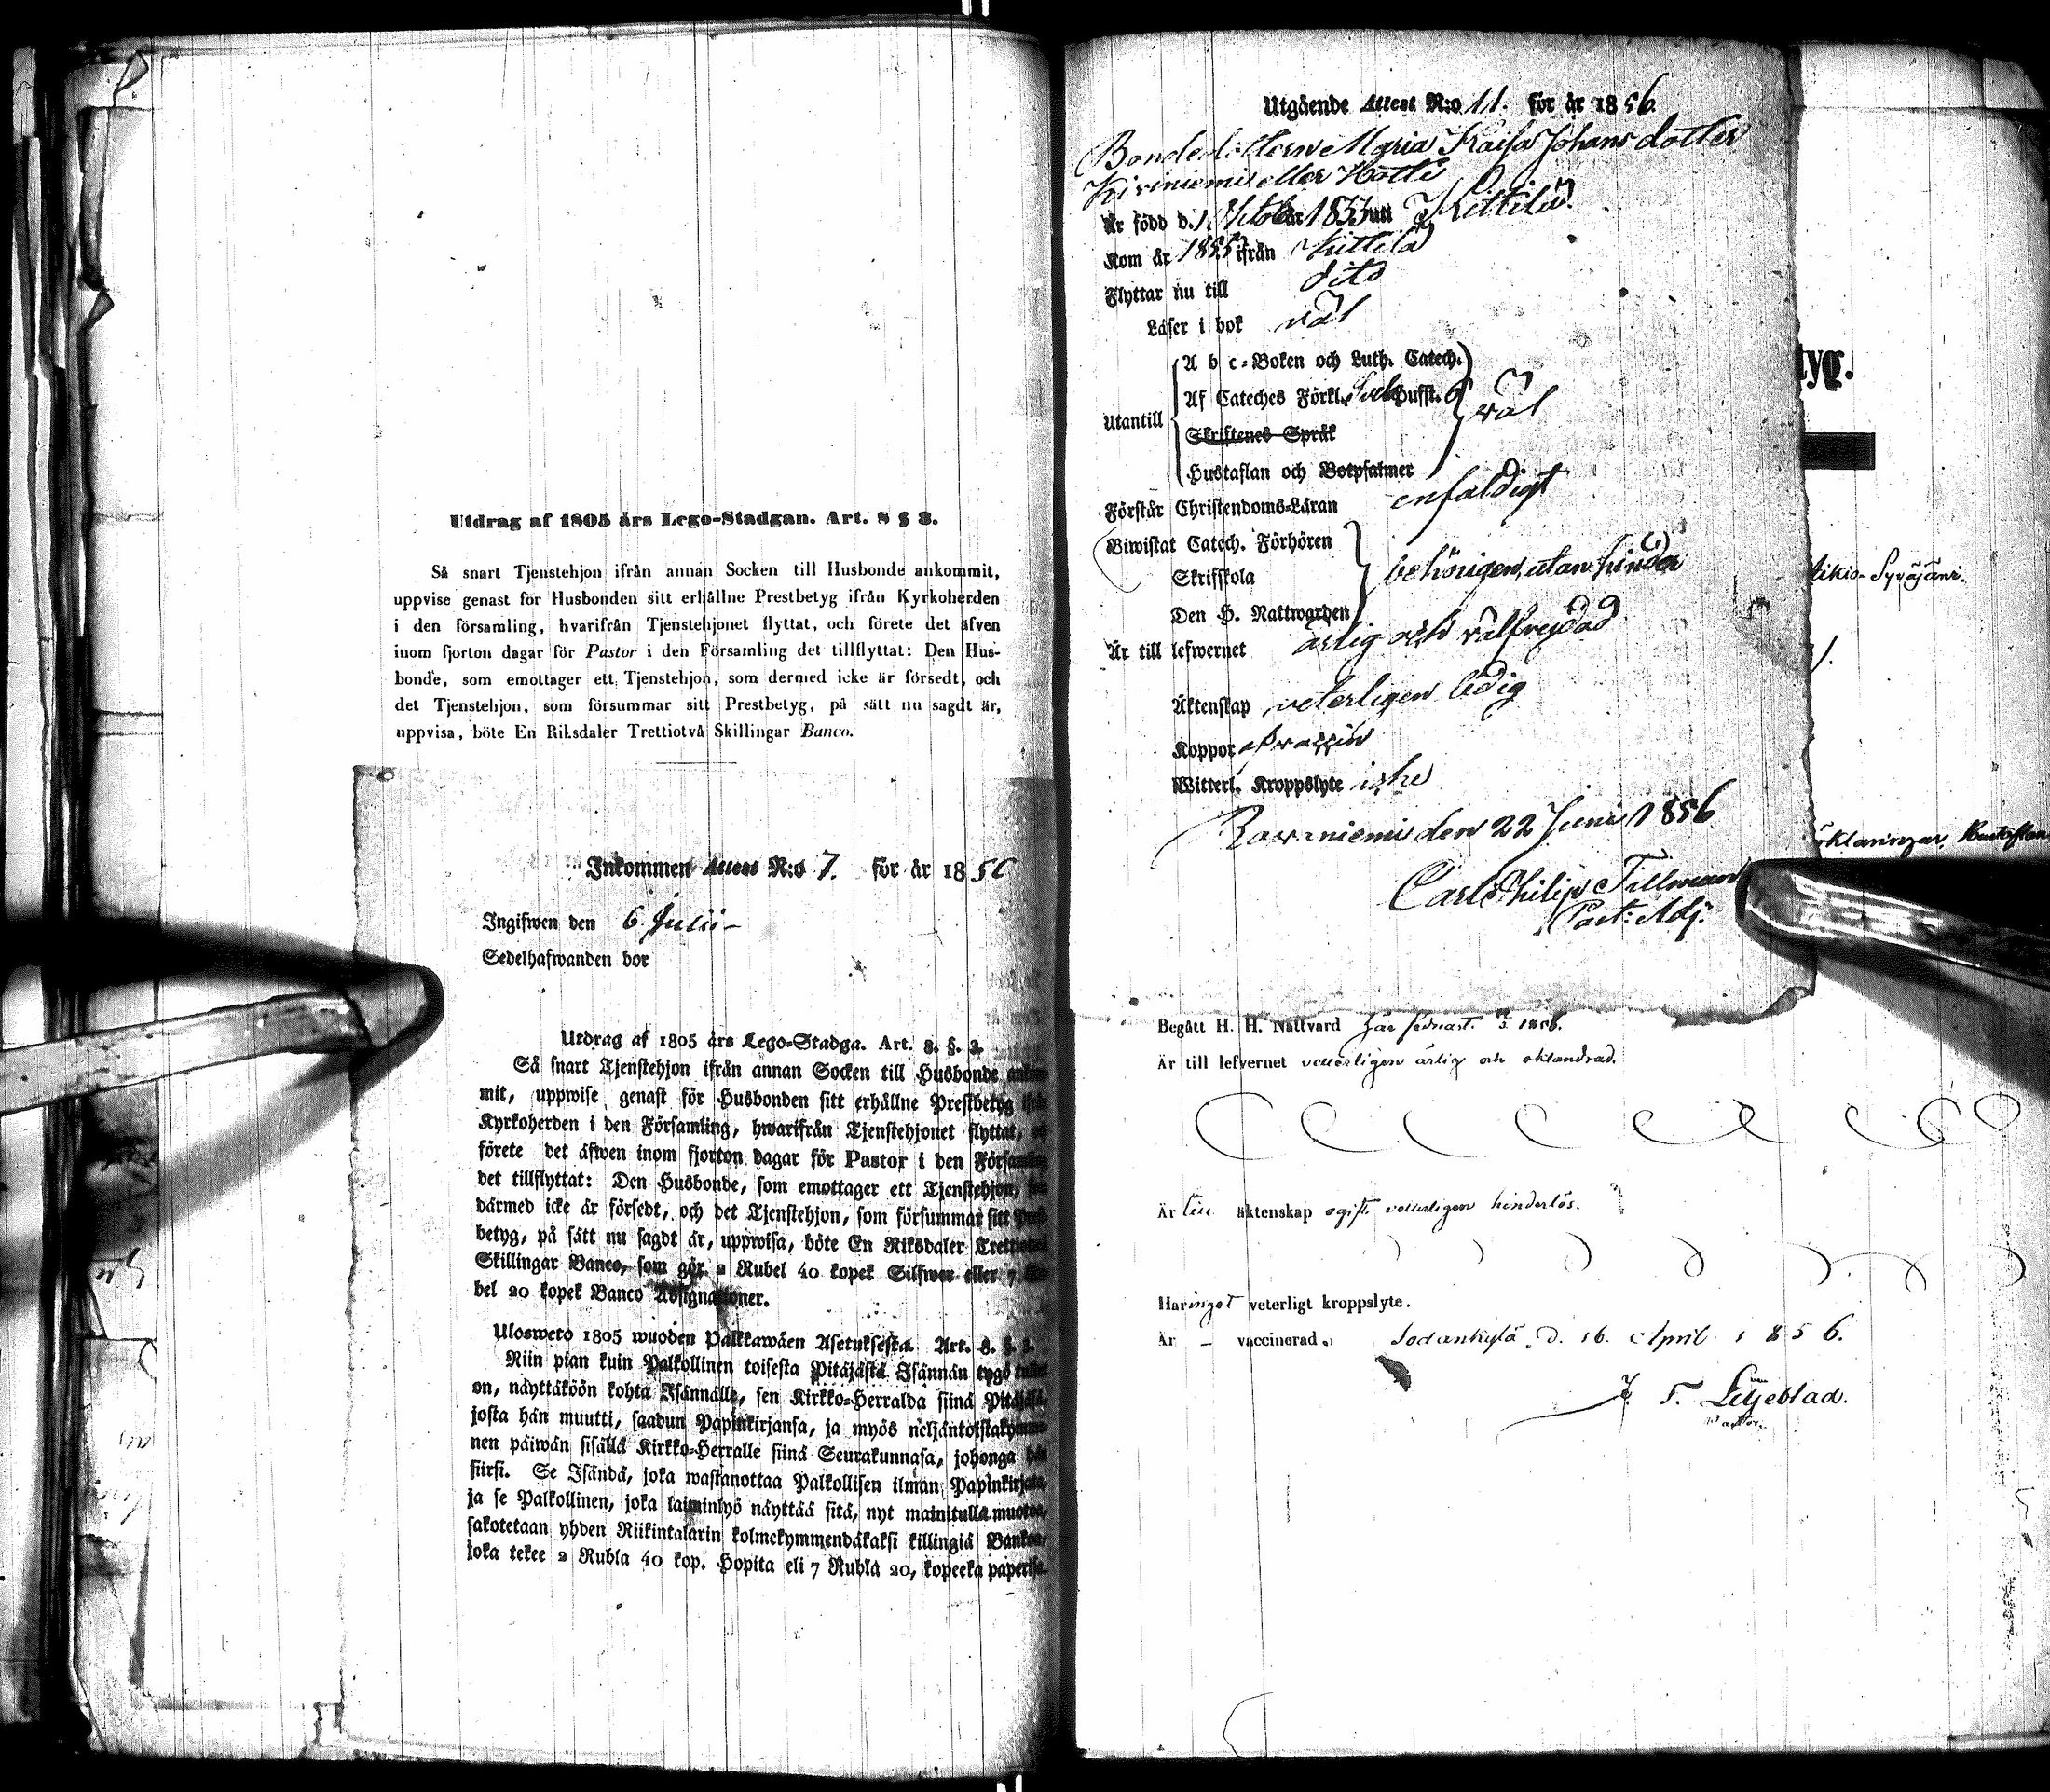 Utdrag af 1805 års Lego-Stadgan. Art. 8 § 3.
Så snart Tjenstehjon ifrån annan Socken till Husbonde ankommit,
uppvise genast för Husbonden sitt erhållne Prestbetyg ifrån Kyrkoherden
i den församling, hvarifrån Tjenstehjonet flyttat, och förete det äfven
inom fjorton dagar för Pastor i den Församling det tillflyttat: Den Hus-
bonde, som emottager ett Tjenstehjon, som dermed icke är försedt, och
det Tjenstehjon, som försummar sitt Prestbetyg, på sätt nu sagdt är,
uppvisa, böte En Riksdaler Trettiotvå Skillingar Banco.
Inkommen Attest N:o 7. för år 1856
Ingifwen den 6 Julii
Sedelhafwanden bor
Utdrag af 1805 års Lego-Stadga. Art. 8. §. 3.
Så snart Tjenstehjon ifrån annan Socken till Husbonde
mit, uppwise genast för Husbonden sitt erhållne Prestbetyg
Kyrkoherden i den Församling, hwarifrån Tjenstehjonet flyttat,
förete det äfwen inom fjorton dagar för Pastor i den
det tillflyttat: Den Husbonde, som emottager ett Tjenstehjon,
därmed icke är försedt, och det Tjenstehjon, som försummar sitt
betyg, på sätt nu sagdt är, uppwisa, böte En Riksdaler
Skillingar Banco, som gör 2 Rubel 40 kopek Silfwer eller 7
bel 20 kopek Banco Assignationer.
Ulosweto 1805 wuoden Palkkawäen Asetuksesta. Art. 8. §. 3.
Niin pian kuin Palkollinen toisesta Pitäjästä Isännän tygö
on, näyttäköön kohta Isännälle, sen Kirkko-Herralda siinä
josta hän muutti, saadun Papinkirjansa, ja myös
nen päiwän sisällä Kirkko-Herralle siinä Seurakunnasa, johonga
siirsi. Se Isändä, joka wastanottaa Palkollisen ilman
ja se Palkollinen, joka laiminlyö näyttää sitä, nyt mainitulla
sakotetaan yhden Riikintalarin kolmekymmendäkaksi killingiä
joka tekee 2 Rubla 40 kop. Hopita eli 7 Rubla 20, kopeeka
Utgående Attest N:o 11. för år 1856.
Bondedottern Maria Kaisa Johansdotter
Kiviniemi eller Hotti
Är född d. 1 år 1833 uti Kittilä
Kom år 1855 ifrån Kittilä
Flyttar nu till dito
Läser i bok väl
A b c-Boken och Luth. Catech.
Af Cateches Förkl.
Utantill väl
Skriftenes Språk
Hustaflan och Botpsalmer
Förstår Christendoms-Läran enfaldigt
Biwistat Catech. Förhören
Skrifskola behörigen, utan hinder
Den H. Nattwarden
Är till lefwernet ärlig och välfrejdad
Äktenskap veterligen ledig
Koppor
Witterl. Kroppslyte icke
Rovaniemi den 22 Juni 1856
Carl Philip Tillman
Past: Adj.
tyg.
Syväjäni.
Begått H. H. Nattvard här sednast.
Är till lefvernet vetterligen ärlig och oklandrad.
Är till äktenskap ogift vetterligen hinderlös.
Har inget veterligt kroppslyte.
Är – vaccinerad. Sodankylä d. 16. April 1856.
Liljeblad.